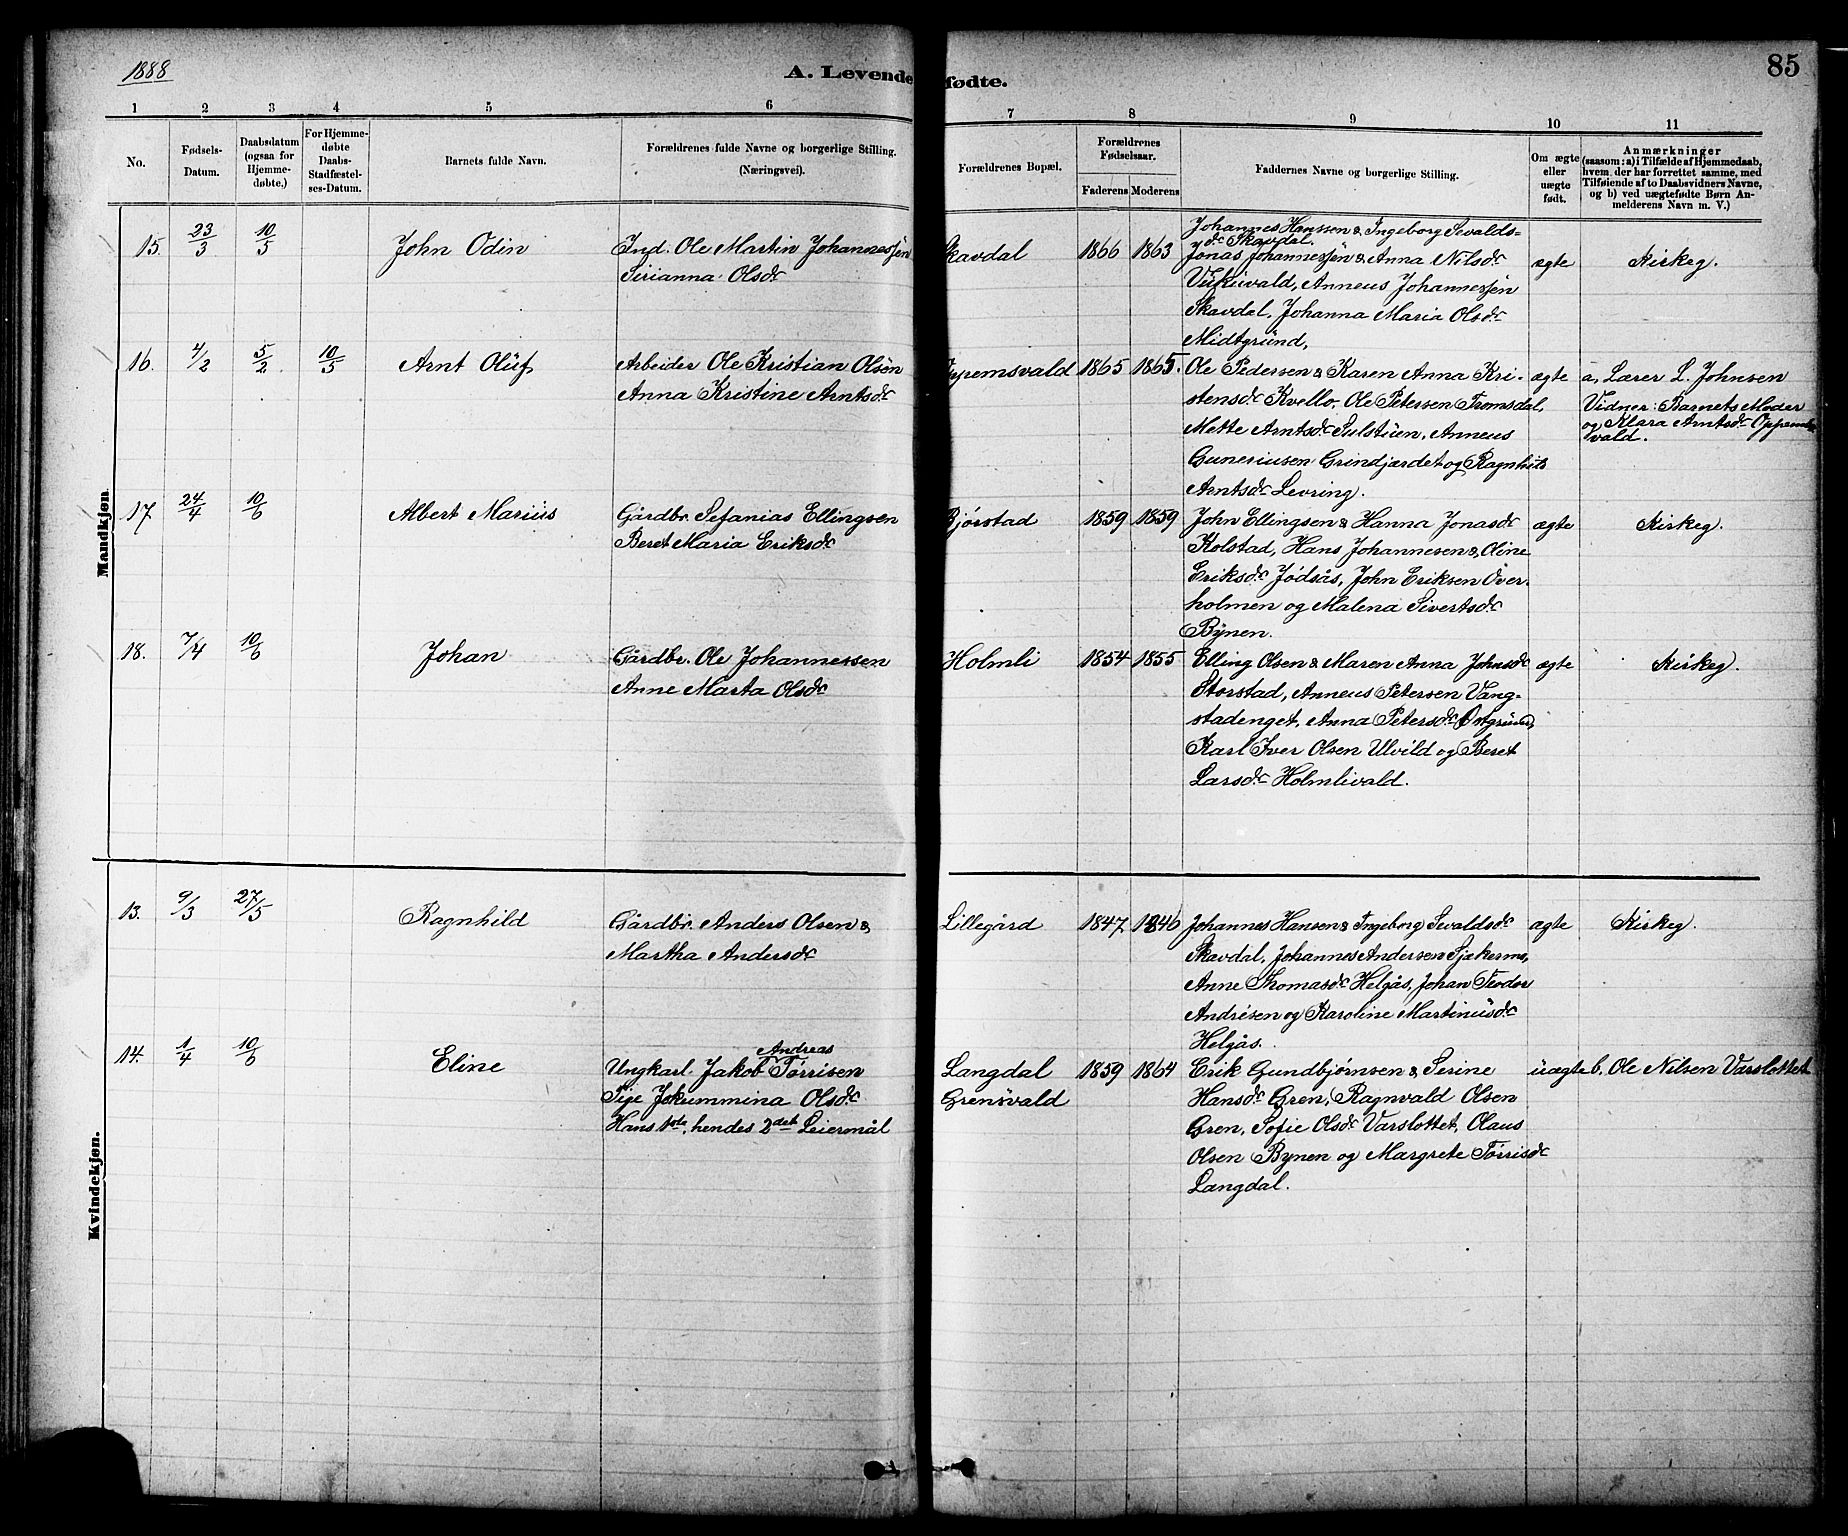 1888
A. Levende fødte.
85
1 2 3 4 5 6 7 8 9 10 11
No.
Fødsels-
Datum.
Daabsdatum
(ogsaa for
Hjemme-
døbte,)
For Hjemme-
døbte
Daabs-
Stadfæstel-
ses-Datum.
Barnets fulde Navn.
Forældrenes fulde Navne og borgerlige Stilling.
(Næringsvei).
Forældrenes Bopæl.
Forældrenes
Fødselsaar.
Faderens Moderens
Faddernes Navne og borgerlige Stilling.
Om ægte
eller
uægte
født.
Anmærkninger
(saasom: a) i Tilfælde af Hjemmedaab,
hvem der har forrettet samme, med
Tilføiende af to Daabsvidners Navne,
og b) ved uægtefødte Børn An-
melderens Navn m. V.)
Mandkjøn.
15. 23/3 10/5 John Odin
Ind. Ole Martin Johannessen
Sirianna Olsdr
Skavdal 1866 1863
Johannes Hanssen & Ingeborg Sevalds-
dr Skavdal.
Jonas Johannessen & Anna Nilsdr
Vukuvald, Anneus Johannessen
Skavdal, Johanna Maria Olsdr
Midtgrund,
ægte Kirkeg.
16. 4/2 5/2 10/5 Arnt Oluf
Arbeider Ole Kristian Olsen
Anna Kristine Arntsdr
1865 1865.
Ole Pedersen & Karen Anna Kri-
stensdr Kvello, Ole Petersen Tromsdal,
Mette Arntsdr Sulstuen, Anneus
Guneriusen Grindjærdet og Ragnhild
Arntsdr Levring.
ægte
a, Lærer L. Johnsen
Vidner: Barnets Moder
og Klara Arntsdr Oppems-
vald.
17 24/4 10/6 Albert Marius
Gårdbr. Sefanias Ellingsen
Beret Maria Eriksdr
Bjørstad 1859 1859
John Ellingsen & Hanna Jonasdr
Kolstad, Hans Johannesen & Oline
Eriksdr Jødsås, John Eriksen Över-
holmen og Malena Sivertsdr
Bynen.
ægte Kirkeg.
18. 7/4 10/6 Johan
Gårdbr. Ole Johannessen
Anne Marta Olsdr
Holmli 1854 1855
Elling Olsen & Maren Anna Johnsdr
Storstad, Anneus Petersen Vang-
stadenget, Anna Petersdr
Karl Iver Olsen Ulvild og Beret
Larsdr Holmlivald.
ægte Kirkeg.
Kvindekjøn.
13. 9/3 27/5 Ragnhild
Gårdbr. Anders Olsen &
Martha Andersdr
Lillegård 1847 1846
Johannes Hansen & Ingeborg Sevaldsdr
Skavdal, Johannes Andersen Sjækermo,
Anne Thomasdr Helgås, Johan Teodor
Andrésen og Karoline Martinusdr
Helgås.
ægte Kirkeg.
14. 1/4 10/6 Eline
Andreas
Ungkarl Jakob Tørrisen
Pige Jokummina Olsdr
Hans 1ste, hendes 2det Leiermål
Langdal 1859 1864
Grensvald
Erik Gundbjørnsen & Serine
Hansdr Gren, Ragnvald Olsen
Gren, Sofie Olsdr Varslottet, Olaus
Olsen Bynen og Margrete Tørrisdr
Langdal.
uægte b. Ole Nilsen Varslottet